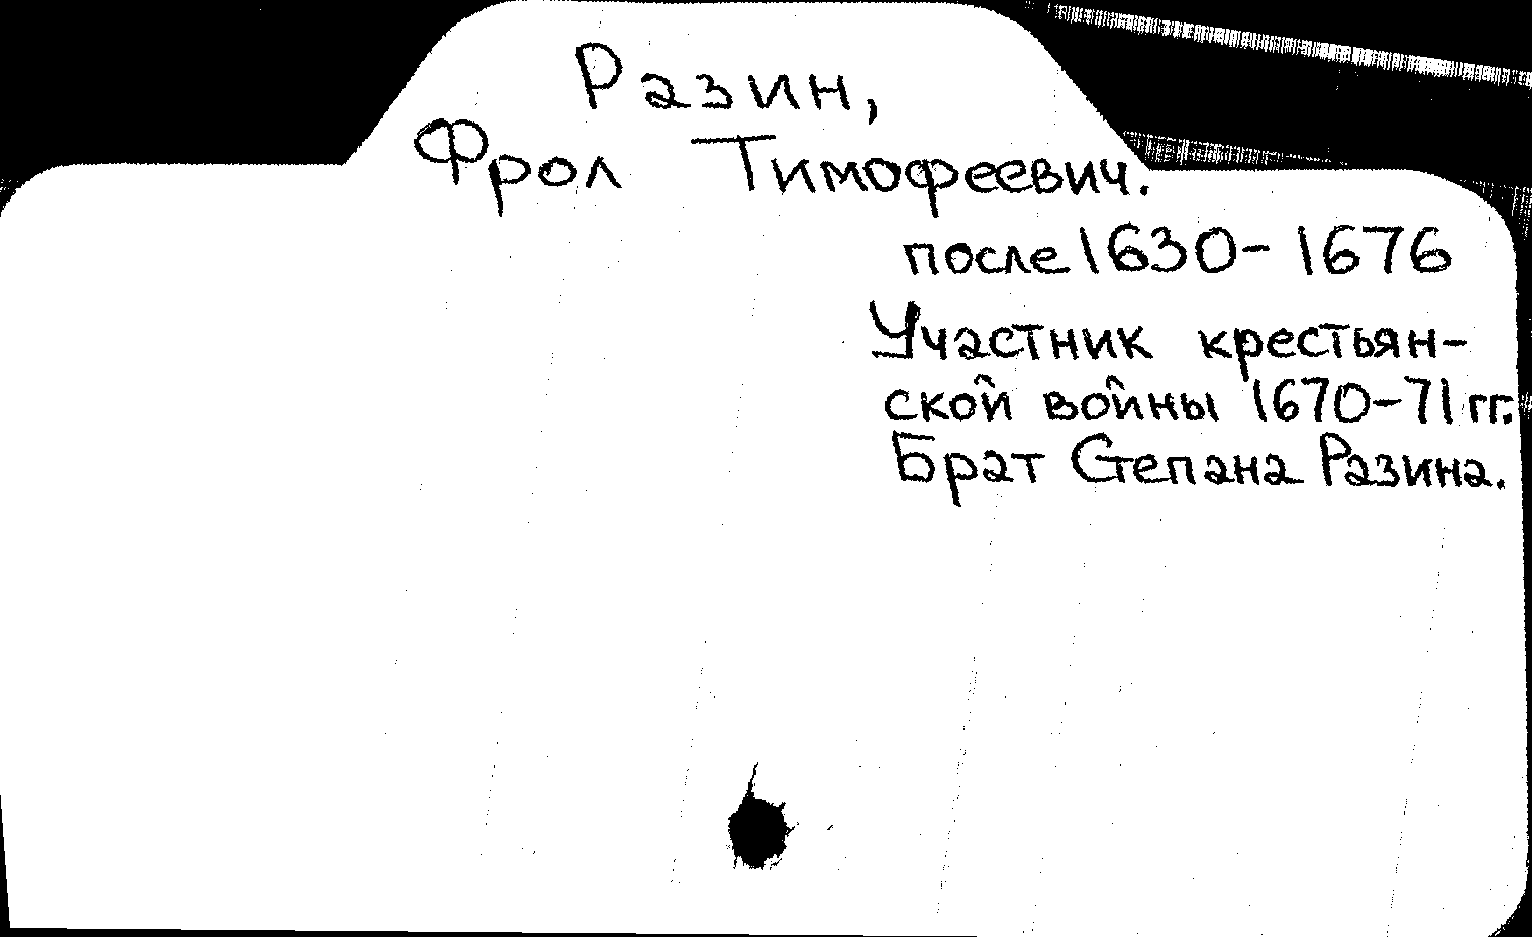 Разин,
Фрол Тимофеевич.
после 1630-1676
Участник крестьян-
ской войны 1670-71 гг.
Брат Степана Разина.